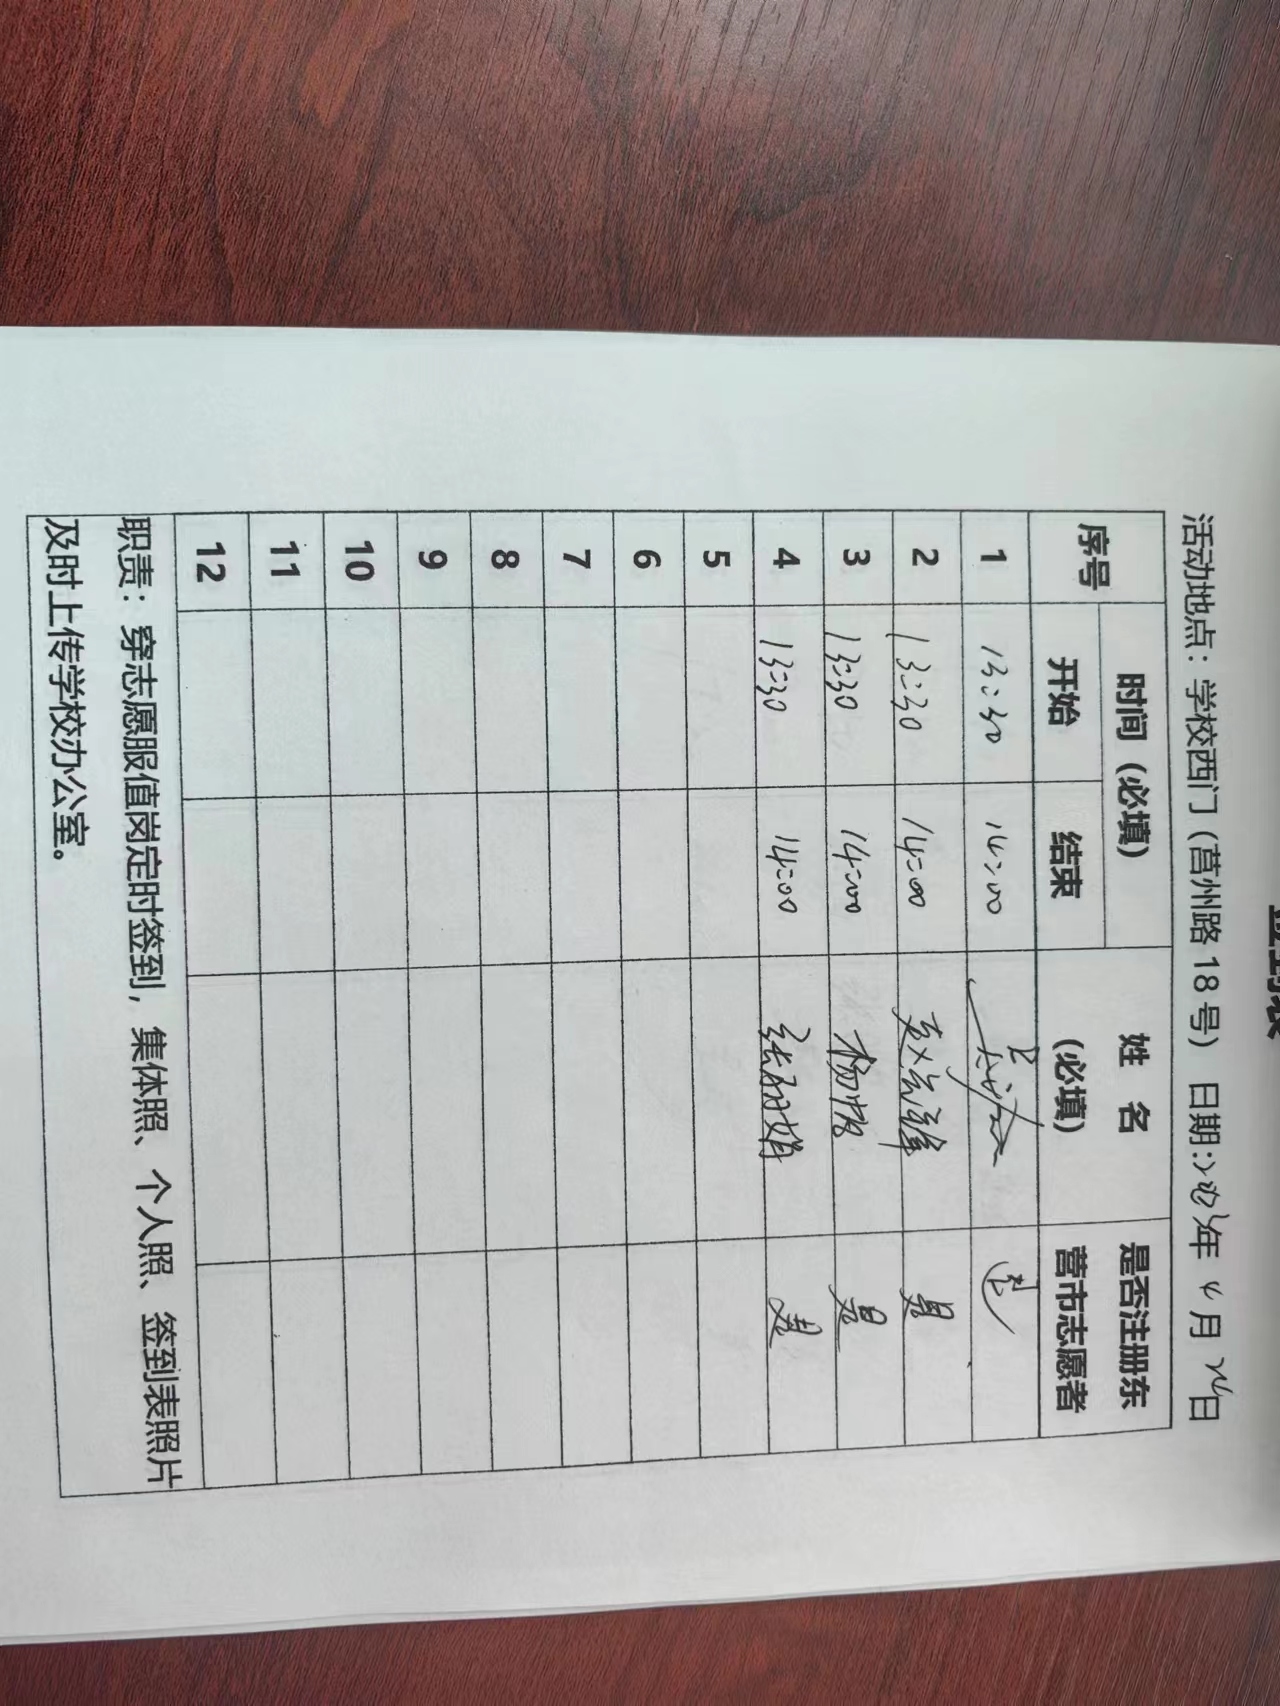 签到表
活动地点：学校西门（莒州路 18 号） 日期:2023年 4 月 24日
序号 时间（必填） 姓 名（必填） 是否注册东营市志愿者
开始 结束
1 13:30 14:00 是
2 13:30 14:00 是
3 13:30 14:00 杨 是
4 13:30 14:00 张 娟 是
5
6
7
8
9
10
11
12
职责：穿志愿服值岗定时签到, 集体照、个人照、签到表照片
及时上传学校办公室。